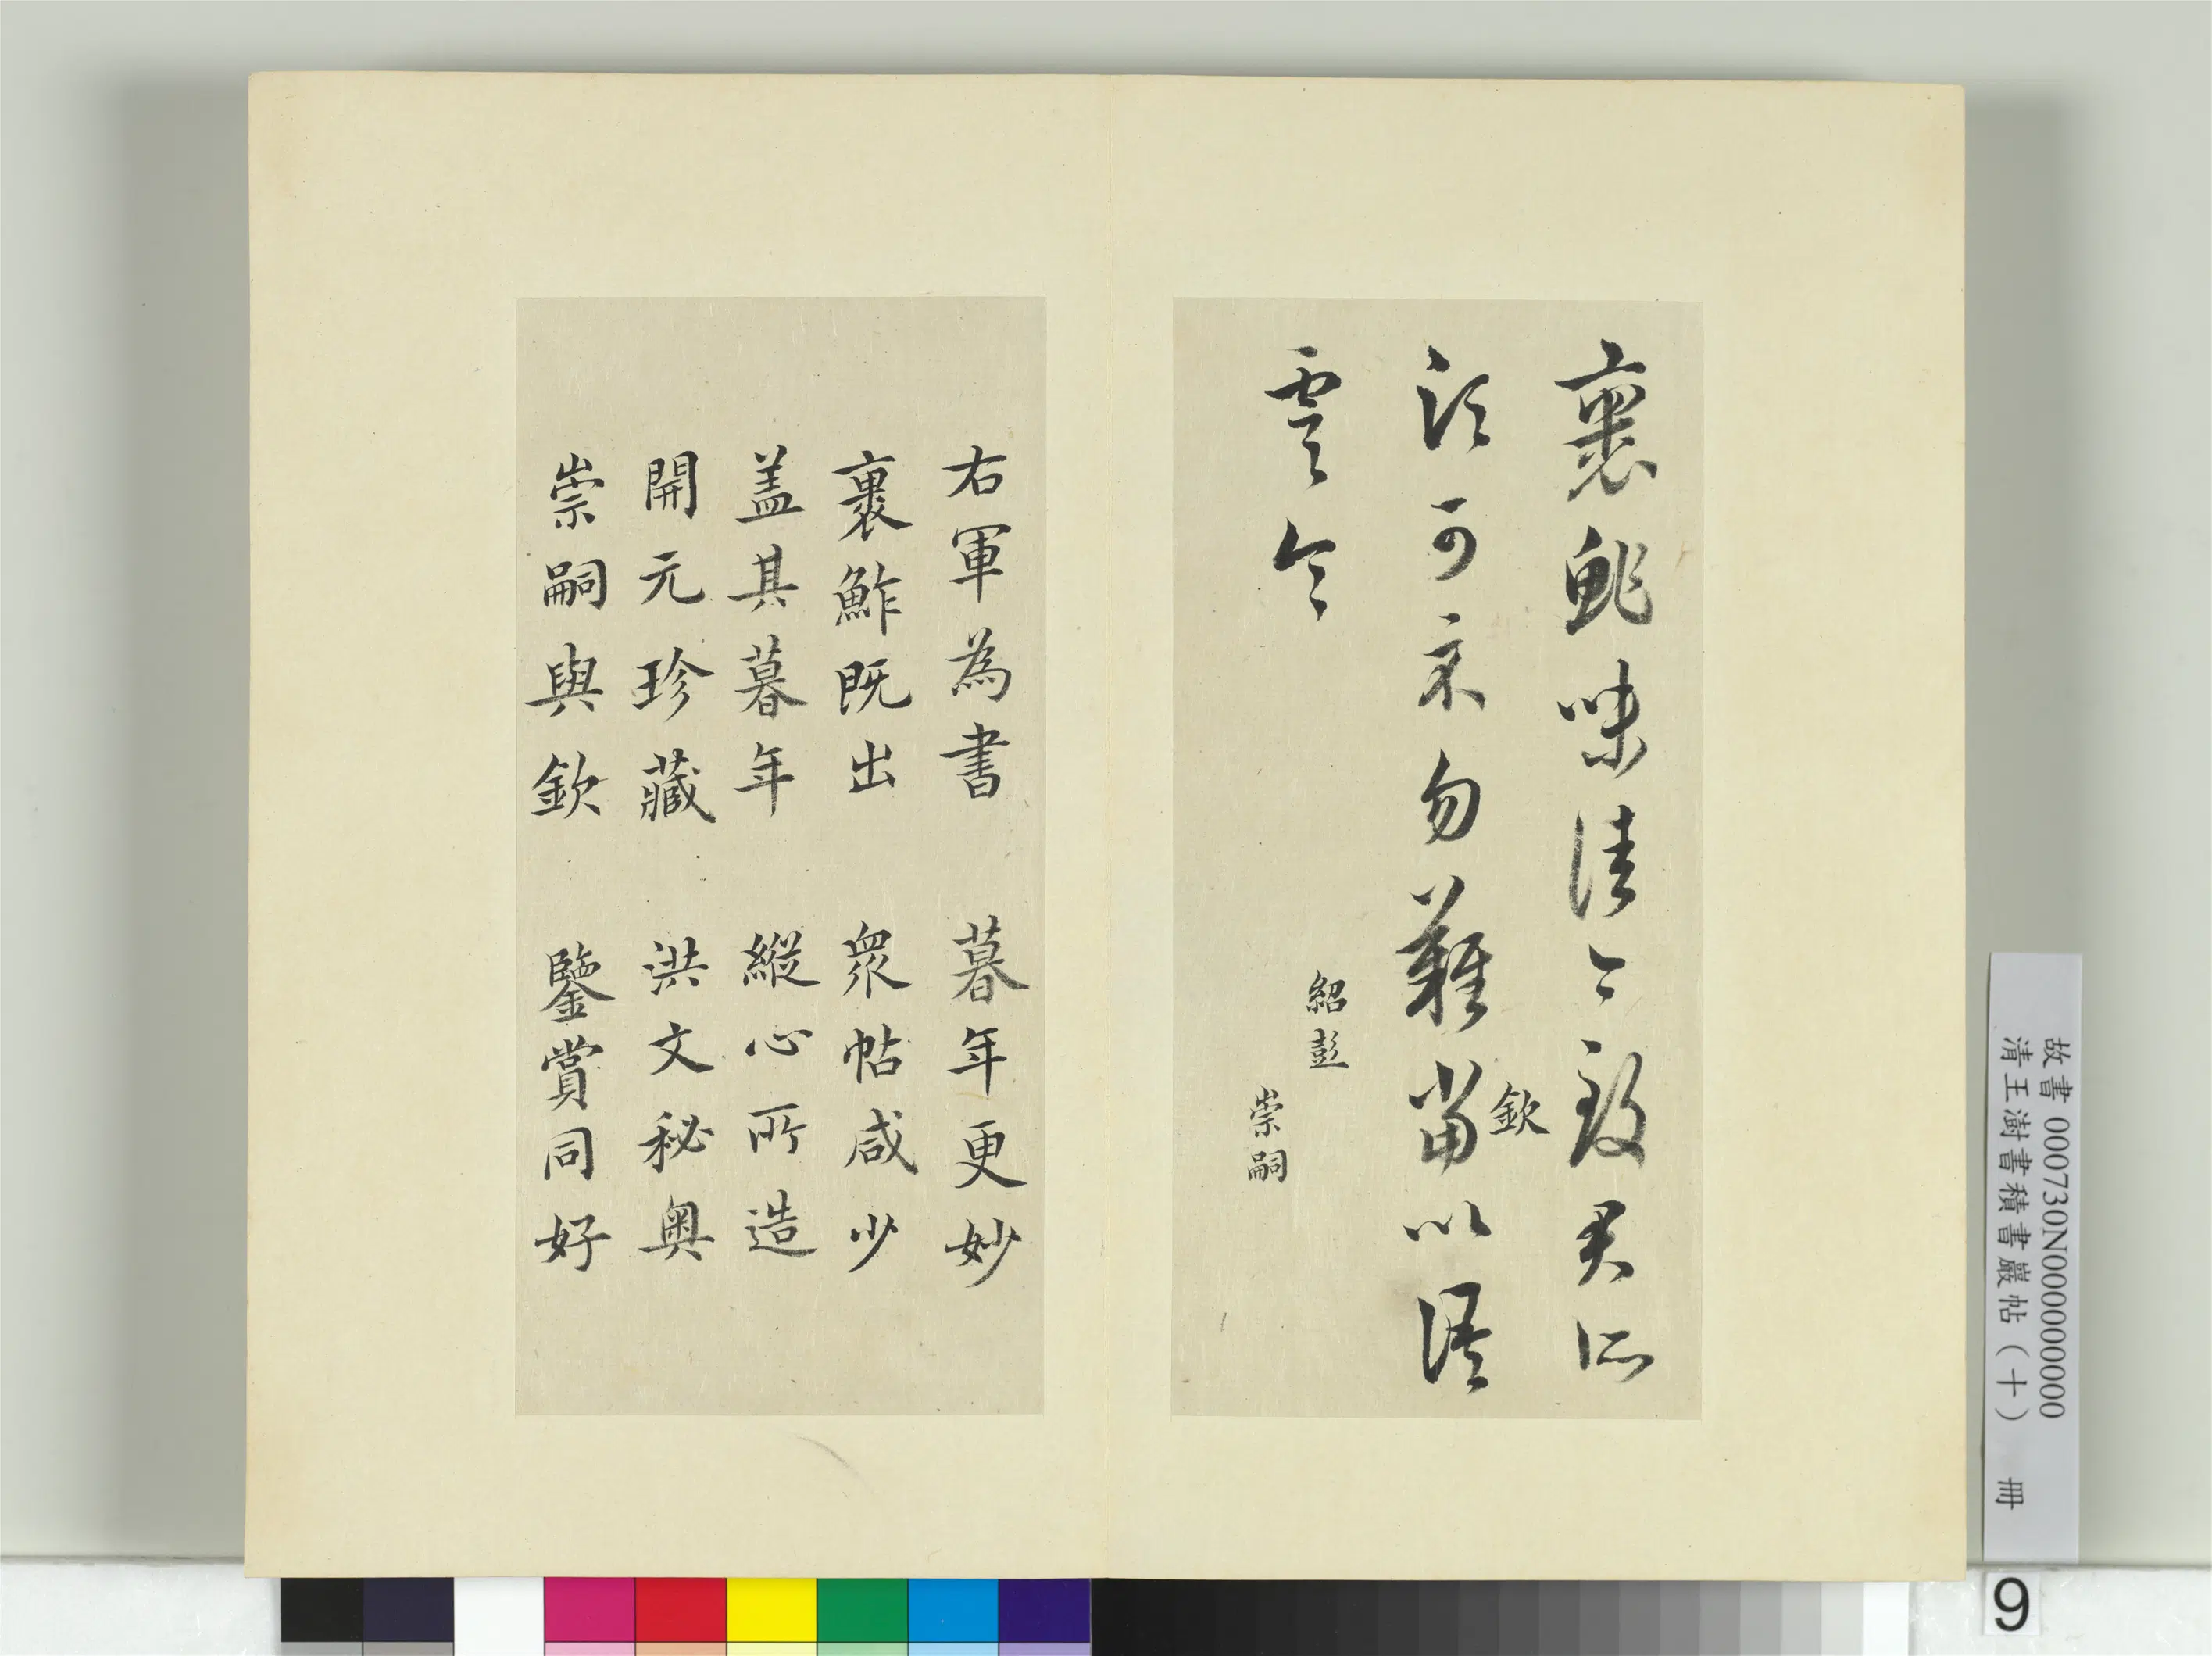 裹鮓味佳今致君所
須可示勿難當以語
虞令
欽
紹彭
崇嗣
右軍為書 暮年更妙
裹鮓既出 衆帖咸少
盖其暮年 縱心所造
開元珍藏 洪文秘奥
崇嗣與欽 鑒賞同好
故書 000730N000000000
清王澍書積書巖帖（十） 冊
9